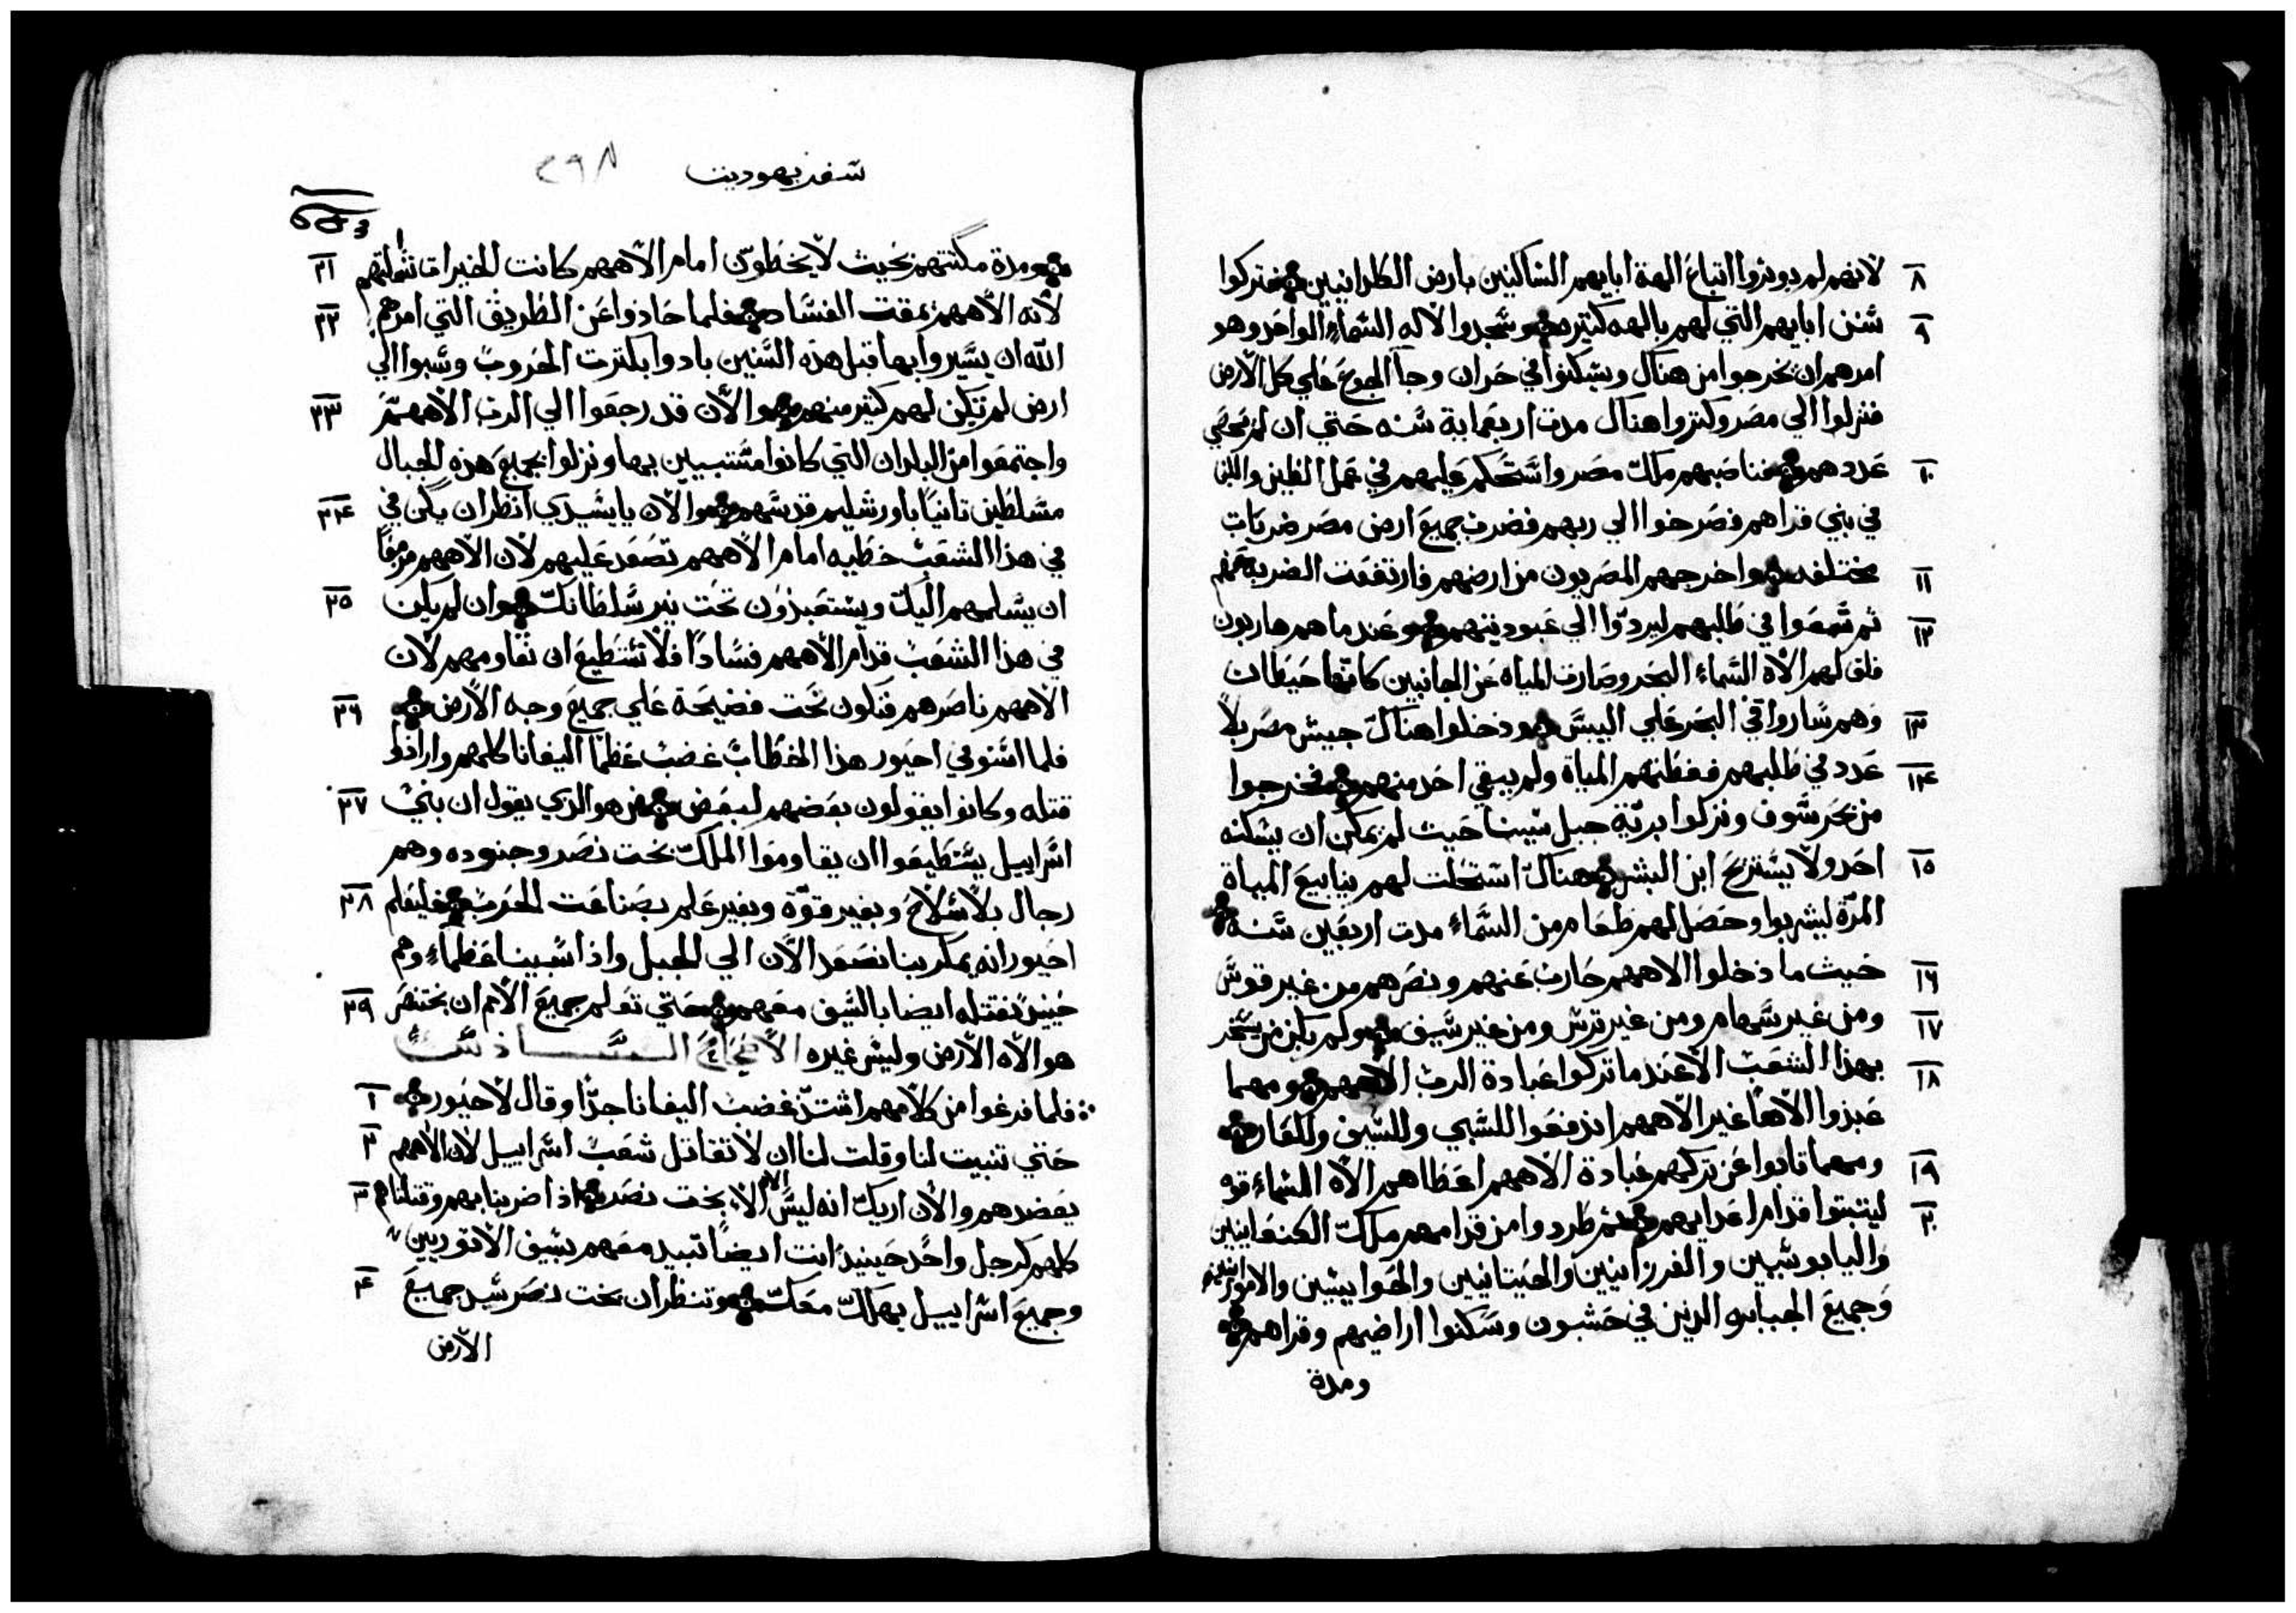 ٨ لانهم لم يويزوا اتباع الهة ابايهم الساكنين بارض الكلدانيين فتركوا
٩ سنن ابايهم التي لهم بالهه كتيره وسجدوا لاله السماء الواحد وهو
امرهم ان يخرجوا من هناك ويسكنوا في حران وجاٰ الجوع علي كل الارض
فنزلوا الي مصر وكتروا هناك مدت اربعماية سنه حتي ان لم يحصي
١٠ عددهم فناصبهم ملك مصر واستحكم عليهم في عمل الطين واللبن
في بني قراهم فصرخوا الي ربهم فضرب جميع ارض مصر ضربات
١١ مختلفه واخرجهم المصريون من ارضهم فارتفعت الضربة عنهم
١٢ ثم سمعوا في طلبهم ليردوا الي عبوديتهم وعند ما هم هاربون
فلق لهم الاه السماء البحر وصارت المياه عن الجانبين كانها حيطان
١٣ وهم ساروا في البحر علي اليبس ودخلوا هناك جيش مصر بلا
١٤ عدد في طلبهم فغطتهم المياة ولم يبقي احد منهم فخرجوا
من بحر سوف ونزلوا برية جبل سينا حيث لم يمكن ان يسكنه
١٥ احد ولا يستريح ابن البشر هناك استحلت لهم ينابيع المياة
المرة ليشربوا وحصل لهم طعام من السماء مدت اربعين سنه
١٦ حيث ما دخلوا الاههم حارب عنهم ونصرهم من غير قوس
١٧ ومن غير سهام ومن غير ترس ومن غير سيف ولم يكن من يسخر
١٨ بهذا الشعب الا عند ما تركوا عبادة الرب الاههم ومهما
عبدوا الاها غير الاههم اندفعوا للسبي وللسيف وللعار
١٩ ومهما تابوا عن تركهم عبادة الاههم اعطاهم الاه السماء قوه
٢٠ ليتبتوا قدام اعدايهم ثم طردوا من قدامهم ملك الكنعانيين
واليابوسيين والفرزانيين والحيتانيين والحوايين والاموراينين
وجميع الجبابره الذين في حشبون وسكنوا اراضيهم وقراهم
ومدة
سفر يهوديت ٢٩٨
٢١ ومدة مكنتهم بحيث لا يخطون امام الاههم كانت الخيرات تشملهم
٢٢ لانه الاههم يمقت الفساد فلما حادوا عن الطريق التي امرهم
الله ان يسيروا بها قبل هذه السنين بادوا بكترت الحروب وسبوا الي
٢٣ ارض لم تكن لهم كتير منهم والان قد رجعوا الي الرب الاههم
واجتمعوا من البلدان التي كانوا متسبيين بها ونزلوا بجميع هذه الجبال
٢٤ متسلطين تانيا باورشليم قدسهم والان يا سيدي انظر ان يكن في
في هذا الشعب خطيه امام الاههم تصعد عليهم لان الاههم مزمعا
٢٥ ان يسلمهم اليك ويستعبدون تحت نير سلطانك وان لم يكن
في هذا الشعب قدام الاههم فسادا فلا تستطيع ان تقاومهم لان
٢٦ الاههم ناصرهم فتكون تحت فضيحة علي جميع وجه الارض
فلما استوفي احيور هذا الخطاب غضب عظما اليفانا كلهم وارادوا
٢٧ قتله وكانوا يقولون بعضهم لبعض من هو الذي يقول ان بني
اسراييل يستطيعوا ان يقاوموا الملك بخت نصر وجنوده وهم
٢٨ رجال بلا سلاح وبغير قوة وبغير علم بصناعت الحرب فليعلم
احيور انه يمكر بنا نصعد الان الي الجبل واذا سبينا عظماء وهم
٢٩ حينيد نقتله ايضا بالسيف معهم حتي تعلم جميع الامم ان بختنصر
هو الاه الارض وليس غيره الاصحاح الســـادس
١ فلما فرغوا من كلامهم اشتد غضب اليفانا جدا وقال لاحيور
٢ حتي تنبيت لنا وقلت لنا ان لا تقاتل شعب اسراييل لان الاههم
٣ يعضدهم والان اريك انه ليس الاه الا بخت نصر اذا ضربنا بهم وقتلناهم
كلهم كرجل واحد حينيد انت ايضا تبيد معهم بسيف الاتوريين
٤ وجميع اسراييل يهلك معك وتنظر ان بخت نصر سيد جميع
الارض